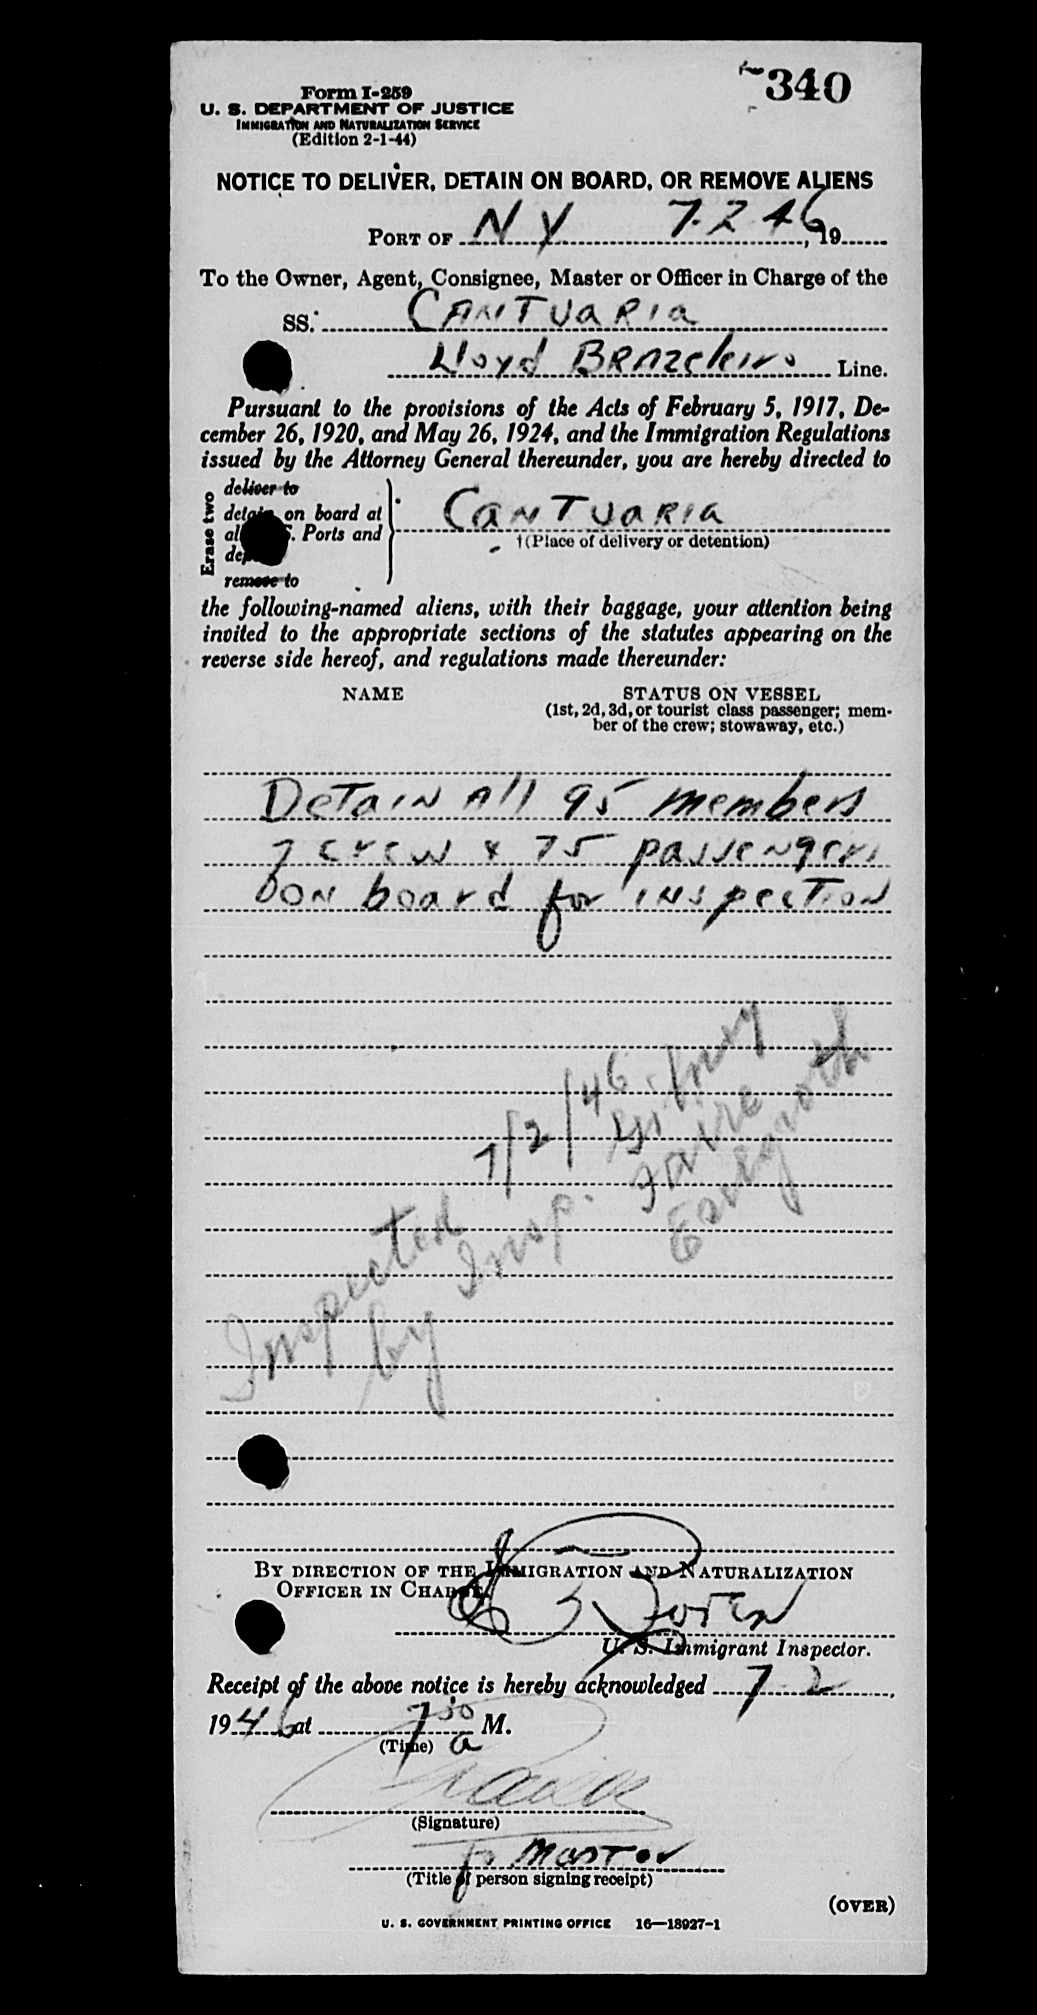 340
Form I-259
U. S. DEPARTMENT OF JUSTICE
IMMIGRATION AND NATURALIZATION SERVICE
(Edition 2-1-44)
NOTICE TO DELIVER, DETAIN ON BOARD, OR REMOVE ALIENS
PORT OF N Y 7-2 46, 19
To the Owner, Agent, Consignee, Master or Officer in Charge of the
SS. CANTUARIA
Lloyd Brazeleiro Line.
Pursuant to the provisions of the Acts of February 5, 1917, De-
cember 26, 1920, and May 26, 1924, and the Immigration Regulations
issued by the Attorney General thereunder, you are hereby directed to
Erase two
deliver to
detain on board at
all U. S. Ports and
remove to
CANTUARIA
†(Place of delivery or detention)
the following-named aliens, with their baggage, your attention being
invited to the appropriate sections of the statutes appearing on the
reverse side hereof, and regulations made thereunder:
NAME STATUS ON VESSEL
(1st, 2d, 3d, or tourist class passenger; mem-
ber of the crew; stowaway, etc.)
Detain All 95 members
7 crew & 75 passengers
on board for inspection
Inspected 7/2/46
by Insp.
BY DIRECTION OF THE IMMIGRATION AND NATURALIZATION
OFFICER IN CHARGE.
U. S. Immigrant Inspector.
Receipt of the above notice is hereby acknowledged 7-2,
1946 at 7 30 a M.
(Time)
(Signature)
Master
(Title of person signing receipt)
(OVER)
U. S. GOVERNMENT PRINTING OFFICE 16—18927-1